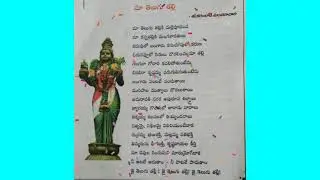 మా తెలుగు తల్లి
మా తెలుగు తల్లికి మల్లెపూదండ
మా కన్నతల్లికి మంగళారతులు
కడుపులో బంగారు కనుచూపులో కరుణ
చిరునవ్వులో సిరులు దొరలించు మా తల్లి
గలగలా గోదారి కదలిపోతుంటేను
బిరబిరా కృష్ణమ్మ పరుగులిడుతుంటేను
బంగారు పంటలే పండుతాయి
మురిపాల ముత్యాలు దొరలుతాయి
అమరావతి నగర అపురూప శిల్పాలు
త్యాగయ్య గొంతులో తారాడు నాదాలు
తిక్కయ్య కలములో తియ్యందనాలు
నిత్యమై నిఖిలమై నిలచియుండేదాక
రుద్రమ్మ భుజశక్తి, మల్లమ్మ పతిభక్తి
తిమ్మరుసు ధీయుక్తి, కృష్ణరాయల కీర్తి
మా చెవుల రింగుమని మారుమ్రోగేదాక
నీ ఆటలే ఆడుతాం - నీ పాటలే పాడుతాం
జై తెలుగు తల్లీ ! జై తెలుగు తల్లీ ! జై తెలుగు తల్లీ !